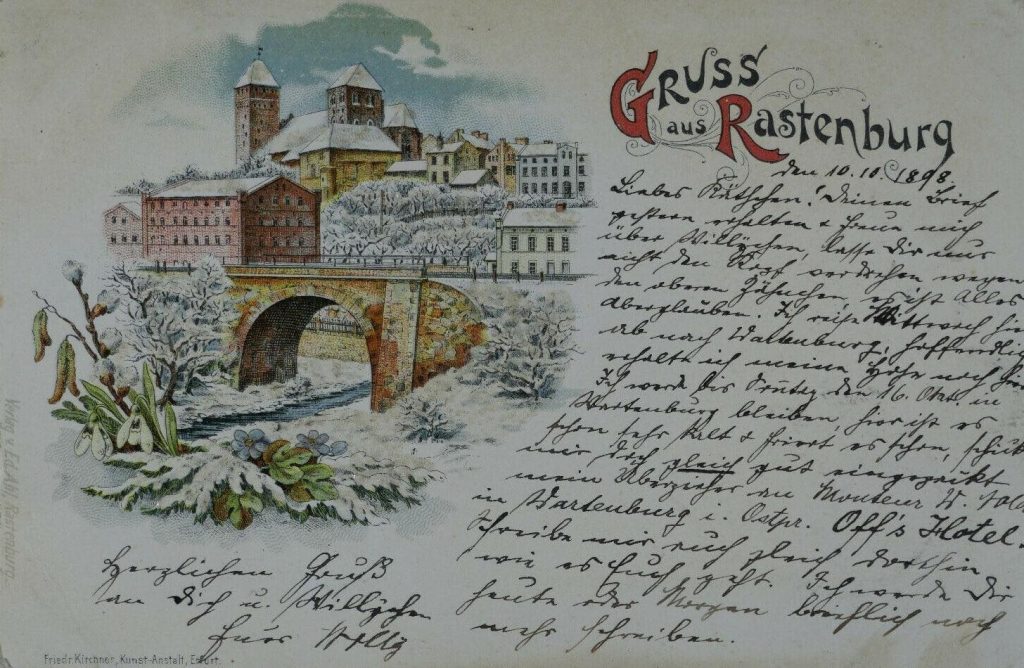 Gruss
aus Rastenburg
den 10.10.1898.
Liebes Käthchen! Deinen Brief
gestern erhalten & freue mich
über Willychen, lasse Dir nur
nicht den Kopf verdrehen wegen
den oberen Zähnchen, es ist Alles
Aberglauben. Ich reise Mittwoch hier
ab nach Wartenburg, hoffendlich
erhalte ich meine noch hier
Ich werde bis den 16. Okt. in
Wartenburg bleiben, hier ist es
schon sehr kalt & friert es schon,
mir doch gleich gut eingepackt
mein Überzieher an Monteur W.
in Wartenburg i. Ostpr. Off's Hotel.
Schreibe mir auch gleich dorthin
wie es Euch geht. Ich werde Dir
heute oder Morgen brieflich noch
mehr schreiben.
Herzlichen Gruß
an Dich u. Willychen
Euer Willy
Friedr. Kirchner, Kunst-Anstalt, Erfurt.
Verlag v. Rastenburg.